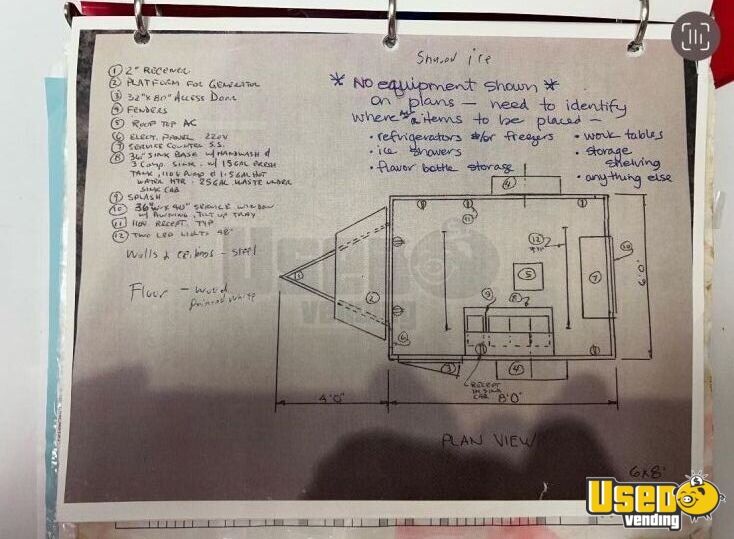 Shaved ice
① 2" RECEIVER
② PLATFORM FOR GENERATOR
③ 32" x 80" ACCESS DOOR
④ FENDERS
⑤ ROOF TOP AC
⑥ ELECT. PANEL 220V
⑦ SERVICE COUNTER S.S.
⑧ 36" SINK BASE W/HANDWASH &
3 COMP. SINK. W/ 15 GAL FRESH
TANK, 110V PUMP & 1.5 GAL HOT
WATER HTR. 25 GAL WASTE UNDER
SINK CAB
⑨ SPLASH
⑩ 36"H x 40" SERVICE WINDOW
W/ AWNING, TILT UP TRAY
⑪ 110V RECEPT. TYP
⑫ TWO LED LIGHTS 48"
Walls & ceilings - steel
Floor - wood
painted white
* NO equipment shown *
on plans — need to identify
where items to be placed —
• refrigerators &/or freezers
• ice shavers
• flavor bottle storage
• work tables
• storage
shelving
• anything else
4
9
11
12
10
1
2
5
7
6'0"
9
8
6
3
4
RECEPT
IN SINK
CAB
4'0"
8'0"
PLAN VIEW
6x8'
USED
vending
USED
vending